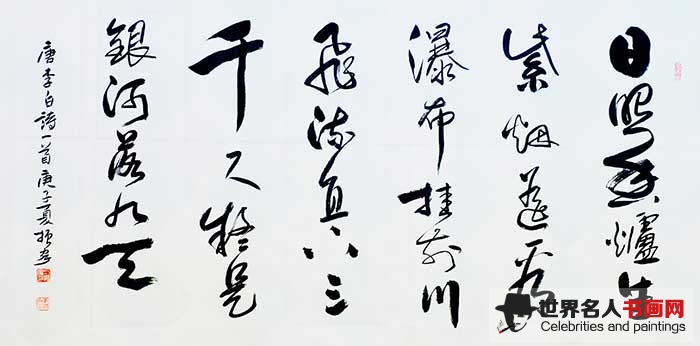 日照香爐生
紫烟遙看
瀑布挂前川
飛流直下三
千尺疑是
銀河落九天
唐李白詩一首庚子夏振
世界名人书画网
Celebrities and paintings